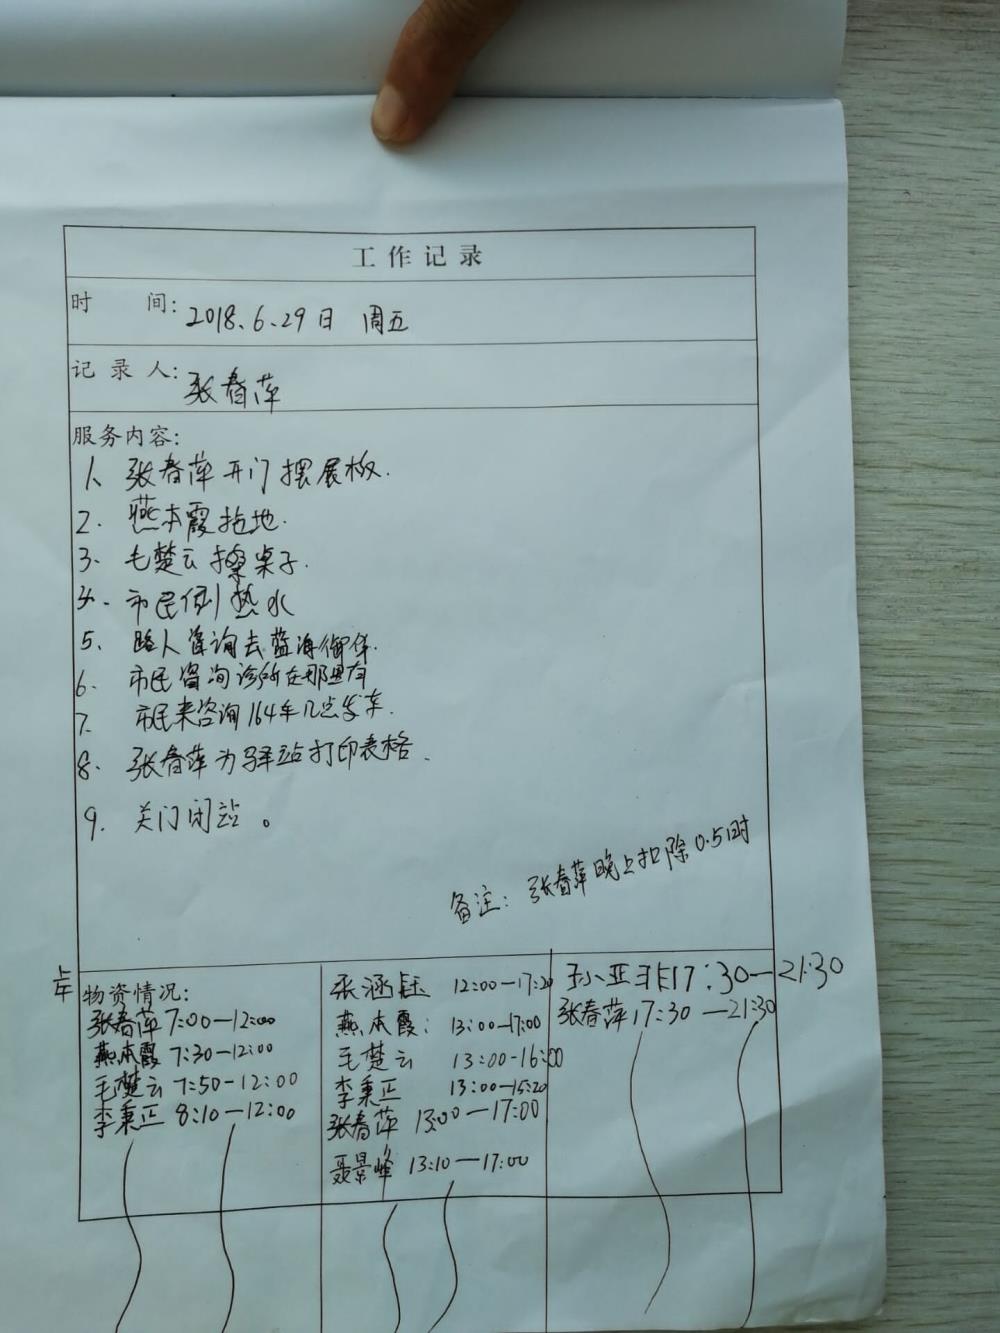 工作记录
时 间: 2018.6.29日 周五
记 录 人: 张春萍
服务内容:
1、张春萍开门摆展板.
2. 燕本霞拖地.
3、毛楚云擦桌子.
4、市民倒热水
5、路人咨询去蓝海御华.
6、市民咨询诊所在那里有
7. 市民来咨询164车几点发车.
8、张春萍为驿站打印表格.
9. 关门闭站。
备注:张春萍晚上扣除0.5时
上午
物资情况:
张春萍 7:00—12:00
燕本霞 7:30—12:00
毛楚云 7:50-12:00
李秉正 8:10—12:00
张涵钰 12:00—17:20
燕本霞: 13:00—17:00
毛楚云 13:00-16:00
李秉正 13:00—15:20
张春萍 13:00—17:00
聂景峰 13:10—17:00
孙亚非17:30—21:30
张春萍17:30—21:30